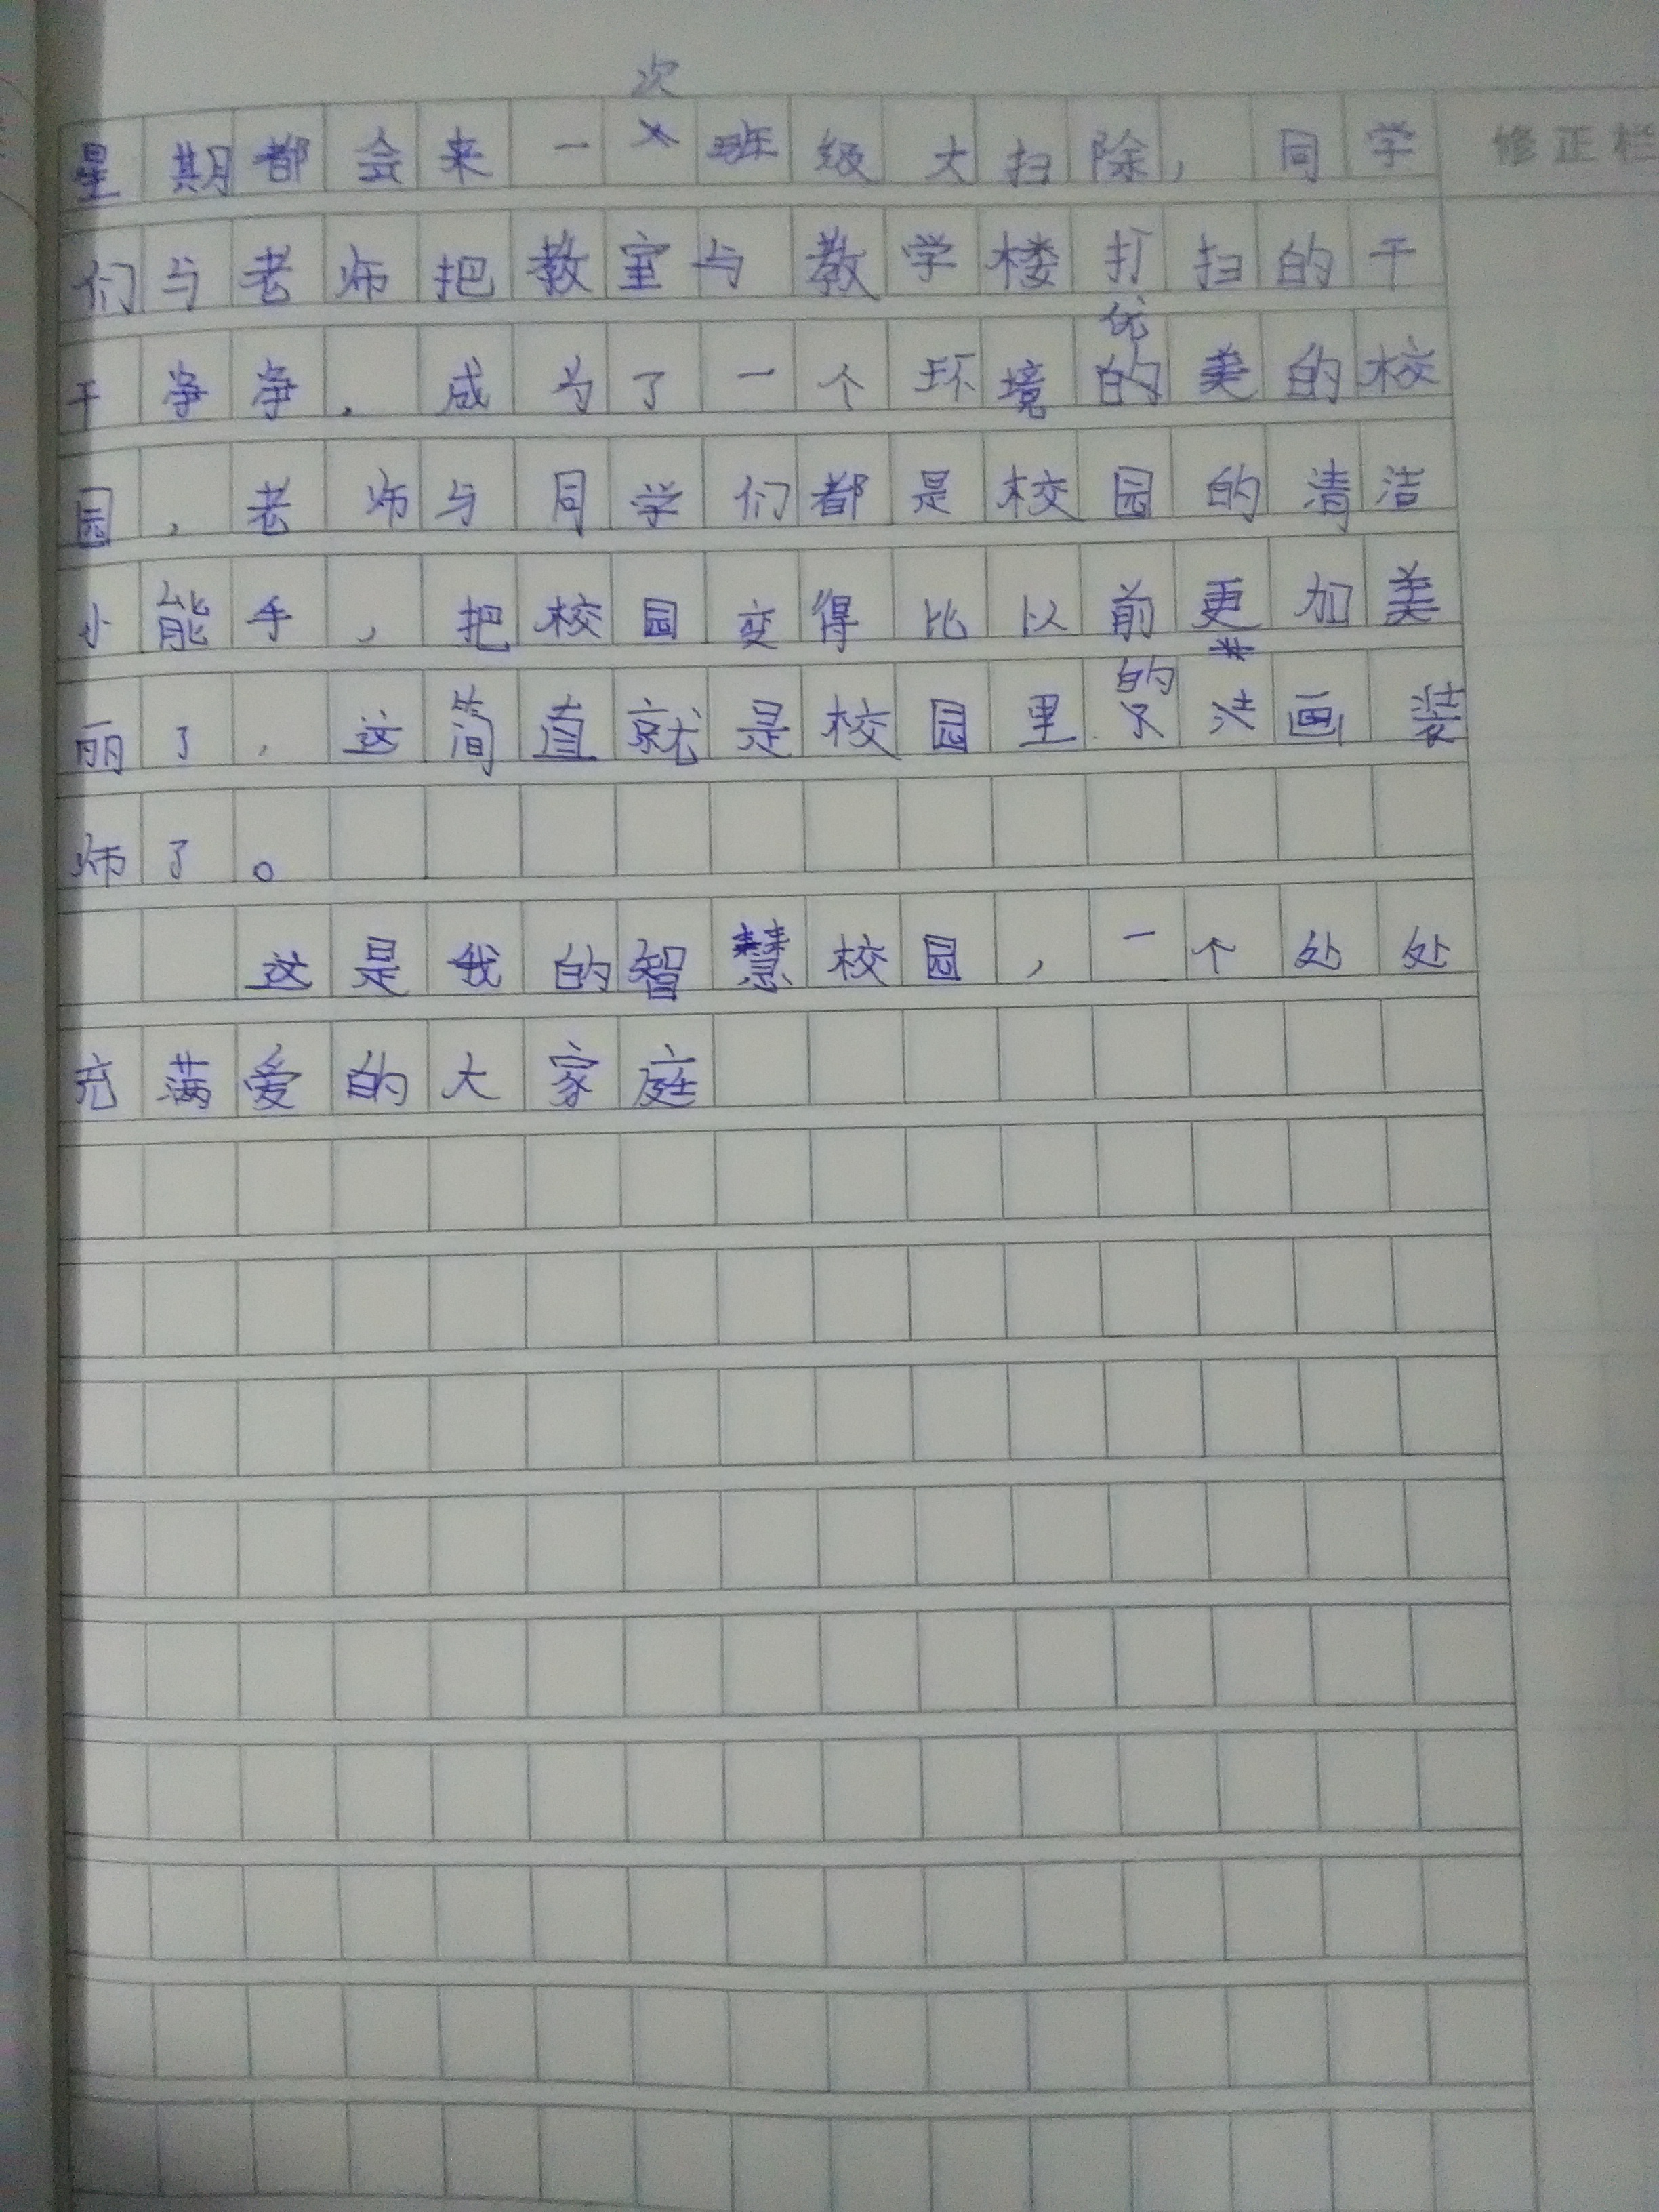 次
星期都会来一 班级大扫除，同学 修正栏
们与老师把教室与教学楼打扫的干
优
干净净．成为了一个环境的美的校
园，老师与同学们都是校园的清洁
小能手，把校园变得比以前更加美
的
丽了，这简直就是校园里 画装
师了。
这是我的智慧校园，一个处处
充满爱的大家庭